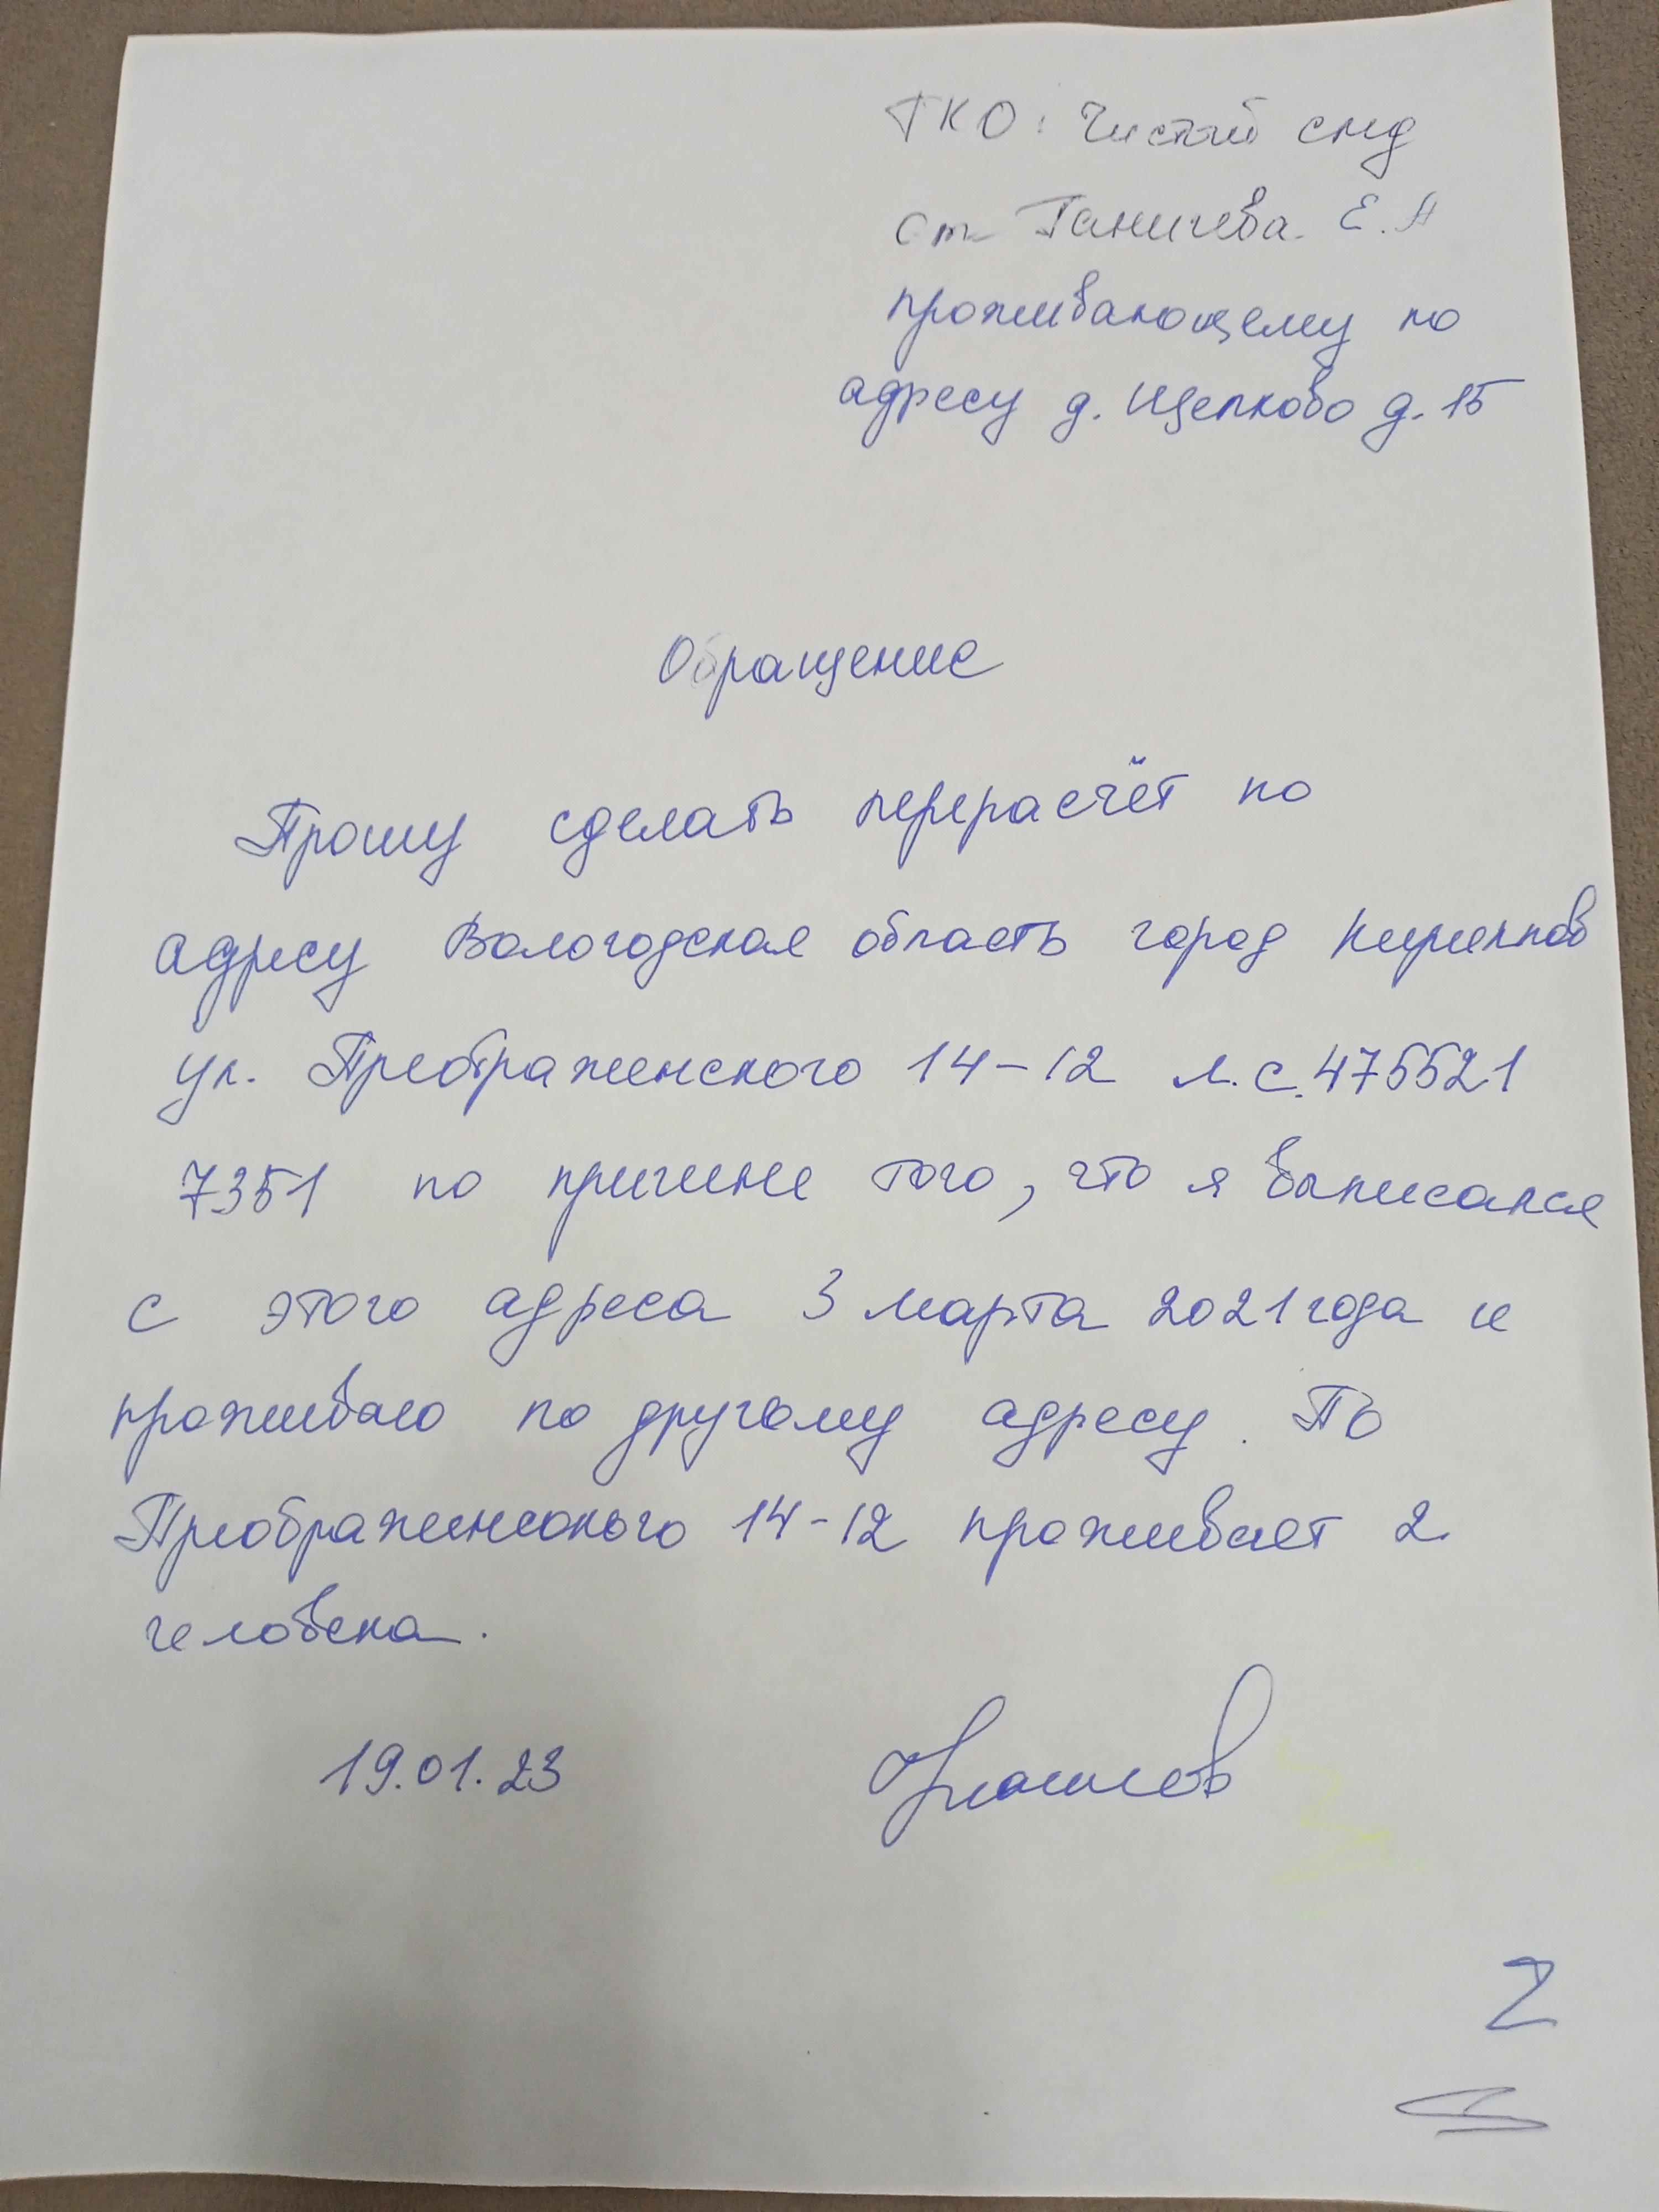 ТКО: Чистый след
от Ганичева Е.А
проживающему по
адресу д. Щелково д. 15
Обращение
Прошу сделать перерасчёт по
адресу Вологодская область город Кириллов
ул. Преображенского 14-12 л.с. 475521
7351 по причине того, что я выписался
с этого адреса 3 марта 2021 года и
проживаю по другому адресу. По
Преображенского 14-12 проживает 2
человека.
19.01.23